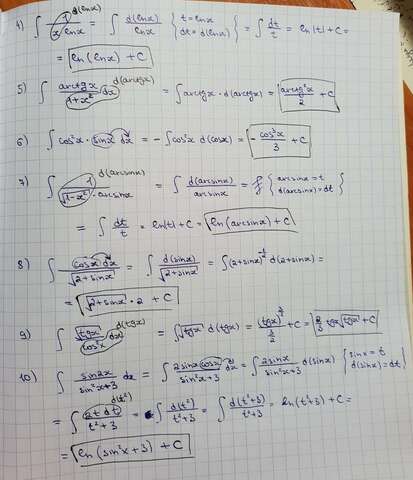 4) ∫ 1/(x lnx) d(lnx) = ∫ d(lnx)/lnx { t = lnx dt = d(lnx) } = ∫ dt/t = ln|t| + C =
= ln(lnx) + C
5) ∫ arctgx/(1+x²) dx d(arctgx) = ∫ arctgx · d(arctgx) = arctg²x/2 + C
6) ∫ cos²x · sinx dx = - ∫ cos²x d(cosx) = - cos³x/3 + C
7) ∫ 1/(√(1-x²) · arcsinx) d(arcsinx) = ∫ d(arcsinx)/arcsinx = { arcsinx = t d(arcsinx) = dt }
= ∫ dt/t = ln|t| + C = ln(arcsinx) + C
8) ∫ cosx dx/√(2+sinx) = ∫ d(sinx)/√(2+sinx) = ∫ (2+sinx)^(-1/2) d(2+sinx) =
= √(2+sinx) · 2 + C
9) ∫ √tgx/cos²x dx d(tgx) = ∫ √tgx d(tgx) = (tgx)^(3/2)/(3/2) + C = 2/3 tgx √tgx + C
10) ∫ sin2x/(sin²x+3) dx = ∫ 2sinx cosx/(sin²x+3) dx = ∫ 2sinx/(sin²x+3) d(sinx) { sinx = t d(sinx) = dt }
= ∫ 2t dt/(t²+3) d(t²) = ∫ d(t²)/(t²+3) = ∫ d(t²+3)/(t²+3) = ln(t²+3) + C =
= ln(sin²x+3) + C